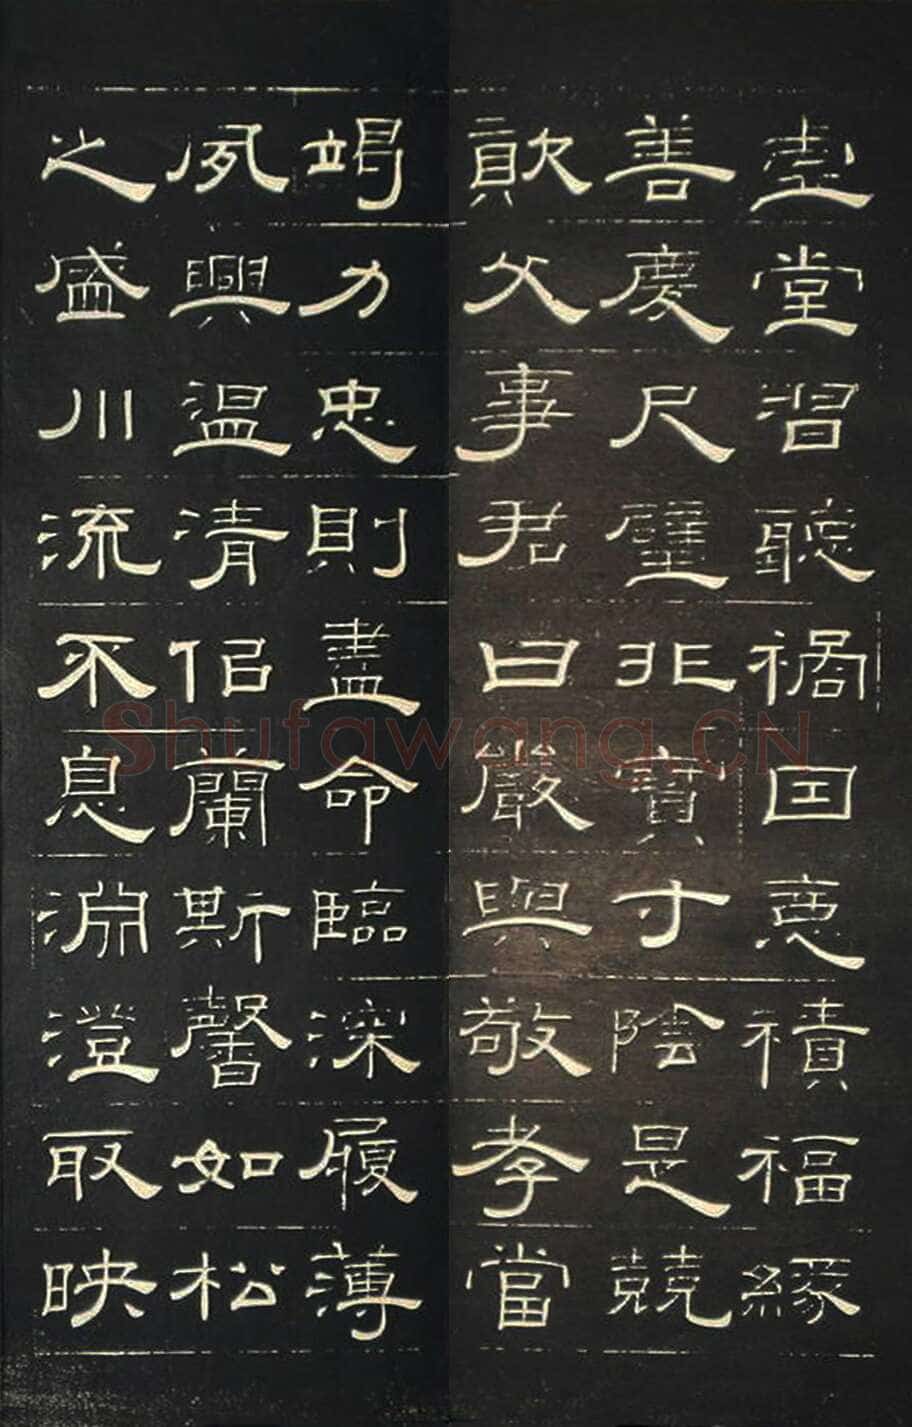 虛堂習聽禍因惡積福緣
善慶尺璧非寶寸陰是競
資父事君曰嚴與敬孝當
竭力忠則盡命臨深履薄
夙興温清佀蘭斯馨如松
之盛川流不息淵澄取映
Shufawang.CN